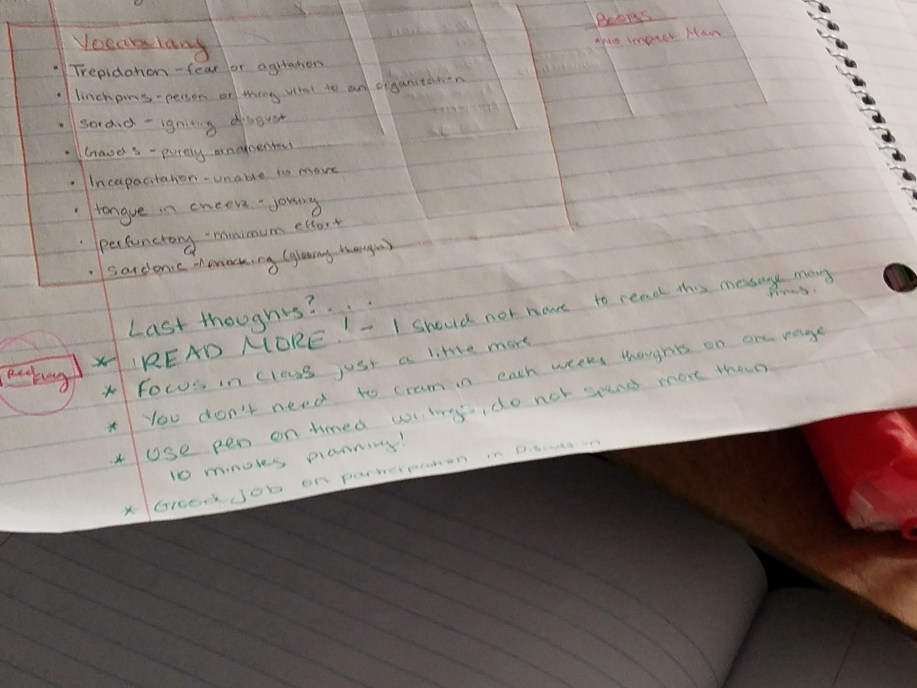 Vocabulary
• Trepidation - fear or agitation
• linchpins - person or thing vital to an organization
• sordid - igniting disgust
• Gauds - purely ornamental
• Incapacitation - unable to move
• tongue in cheek - joking
• perfunctory - minimum effort
• sardonic - mocking (gloomy though)
Books
Impact Man
Last thoughts? ....
* READ MORE! - I should not have to read this message many times.
* Focus in class just a little more
* You don't need to cram in each weeks thoughts on one page
* Use pen on timed writings, do not spend more than
10 minutes planning!
* Good job on participation in Discussion
Red